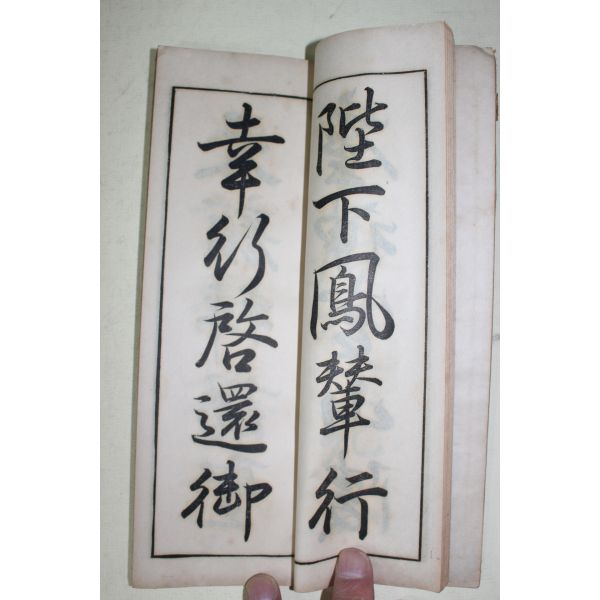 陛下鳳輦行
幸行啓還御